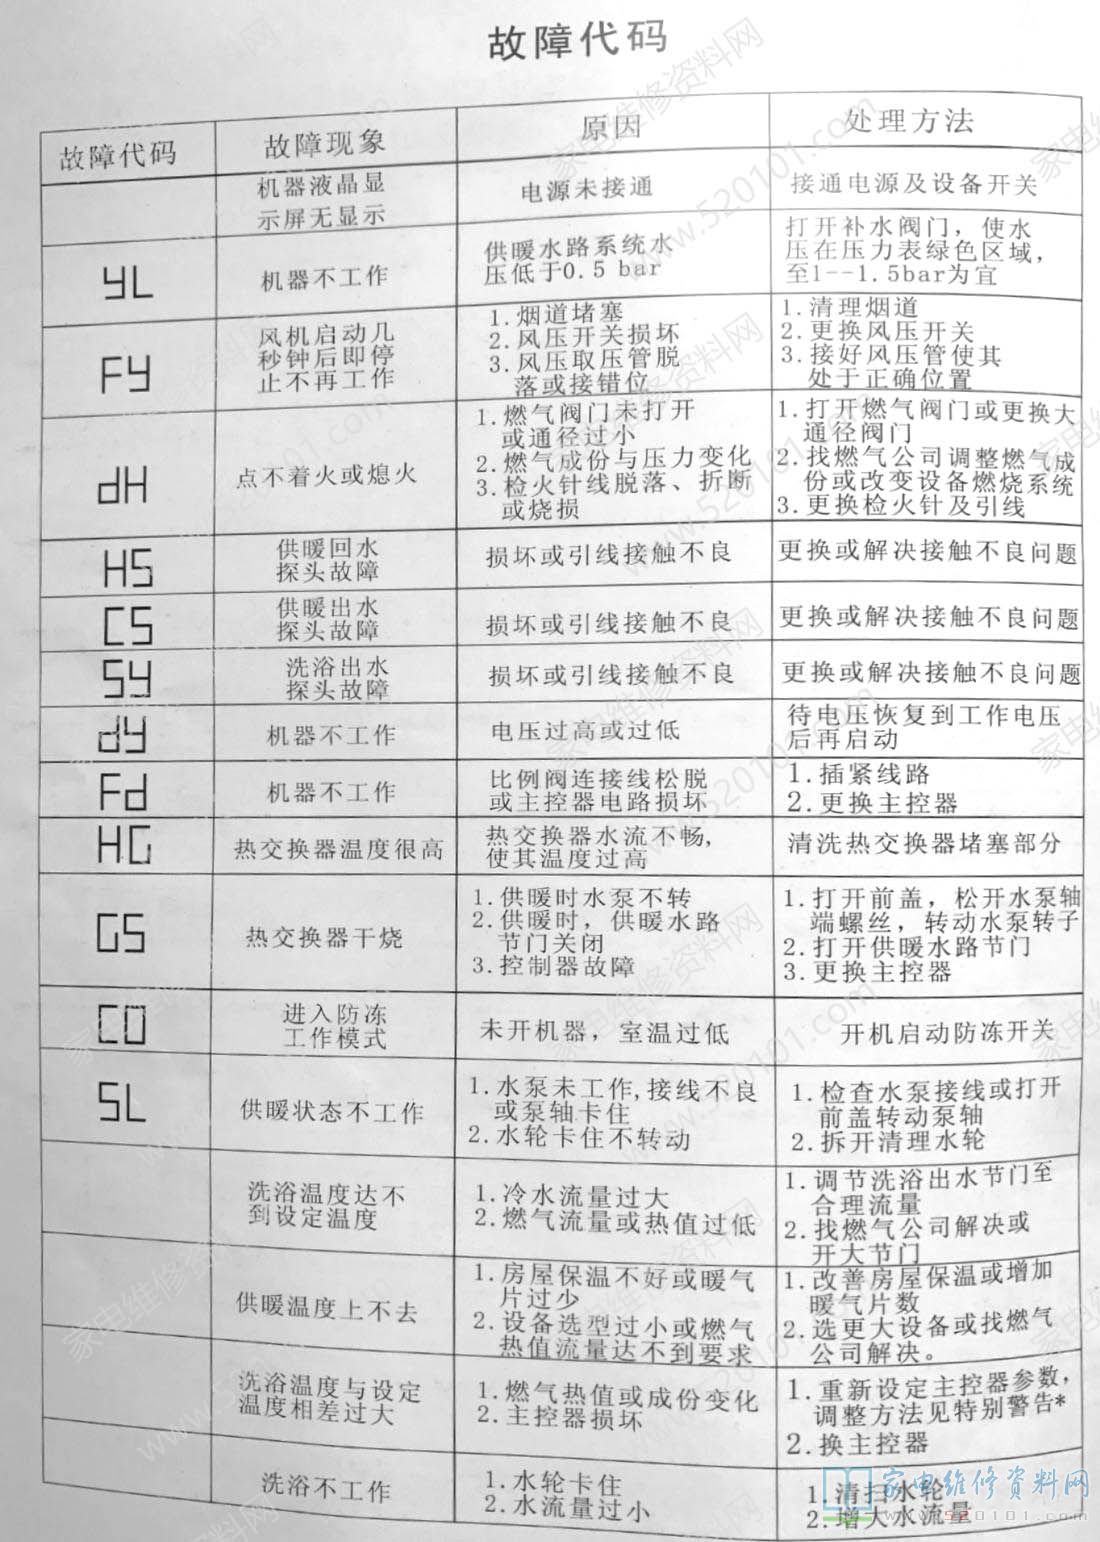 故障代码
故障代码 故障现象 原因 处理方法
机器液晶显
示屏无显示
电源未接通
接通电源及设备开关
yL
机器不工作
供暖水路系统水
压低于0.5 bar
打开补水阀门，使水
压在压力表绿色区域，
至1--1.5bar为宜
Fy
风机启动几
秒钟后即停
止不再工作
1.烟道堵塞
2.风压开关损坏
3.风压取压管脱
落或接错位
1.清理烟道
2.更换风压开关
3.接好风压管使其
处于正确位置
dH
点不着火或熄火
1.燃气阀门未打开
或通径过小
2.燃气成份与压力变化
3.检火针线脱落、折断
或烧损
1.打开燃气阀门或更换大
通径阀门
2.找燃气公司调整燃气成
份或改变设备燃烧系统
3.更换检火针及引线
HS
供暖回水
探头故障
损坏或引线接触不良
更换或解决接触不良问题
CS
供暖出水
探头故障
损坏或引线接触不良
更换或解决接触不良问题
Sy
洗浴出水
探头故障
损坏或引线接触不良
更换或解决接触不良问题
dy
机器不工作
电压过高或过低
待电压恢复到工作电压
后再启动
Fd
机器不工作
比例阀连接线松脱
或主控器电路损坏
1.插紧线路
2.更换主控器
HG
热交换器温度很高
热交换器水流不畅，
使其温度过高
清洗热交换器堵塞部分
GS
热交换器干烧
1.供暖时水泵不转
2.供暖时，供暖水路
节门关闭
3.控制器故障
1.打开前盖，松开水泵轴
端螺丝，转动水泵转子
2.打开供暖水路节门
3.更换主控器
CO
进入防冻
工作模式
未开机器，室温过低
开机启动防冻开关
SL
供暖状态不工作
1.水泵未工作,接线不良
或泵轴卡住
2.水轮卡住不转动
1.检查水泵接线或打开
前盖转动泵轴
2.拆开清理水轮
洗浴温度达不
到设定温度
1.冷水流量过大
2.燃气流量或热值过低
1.调节洗浴出水节门至
合理流量
2.找燃气公司解决或
开大节门
供暖温度上不去
1.房屋保温不好或暖气
片过少
2.设备选型过小或燃气
热值流量达不到要求
1.改善房屋保温或增加
暖气片数
2.选更大设备或找燃气
公司解决。
洗浴温度与设定
温度相差过大
1.燃气热值或成份变化
2.主控器损坏
1.重新设定主控器参数，
调整方法见特别警告*
2.换主控器
洗浴不工作
1.水轮卡住
2.水流量过小
1.清扫水轮
2.增大水流量
家电维修资料网
www.520101.com